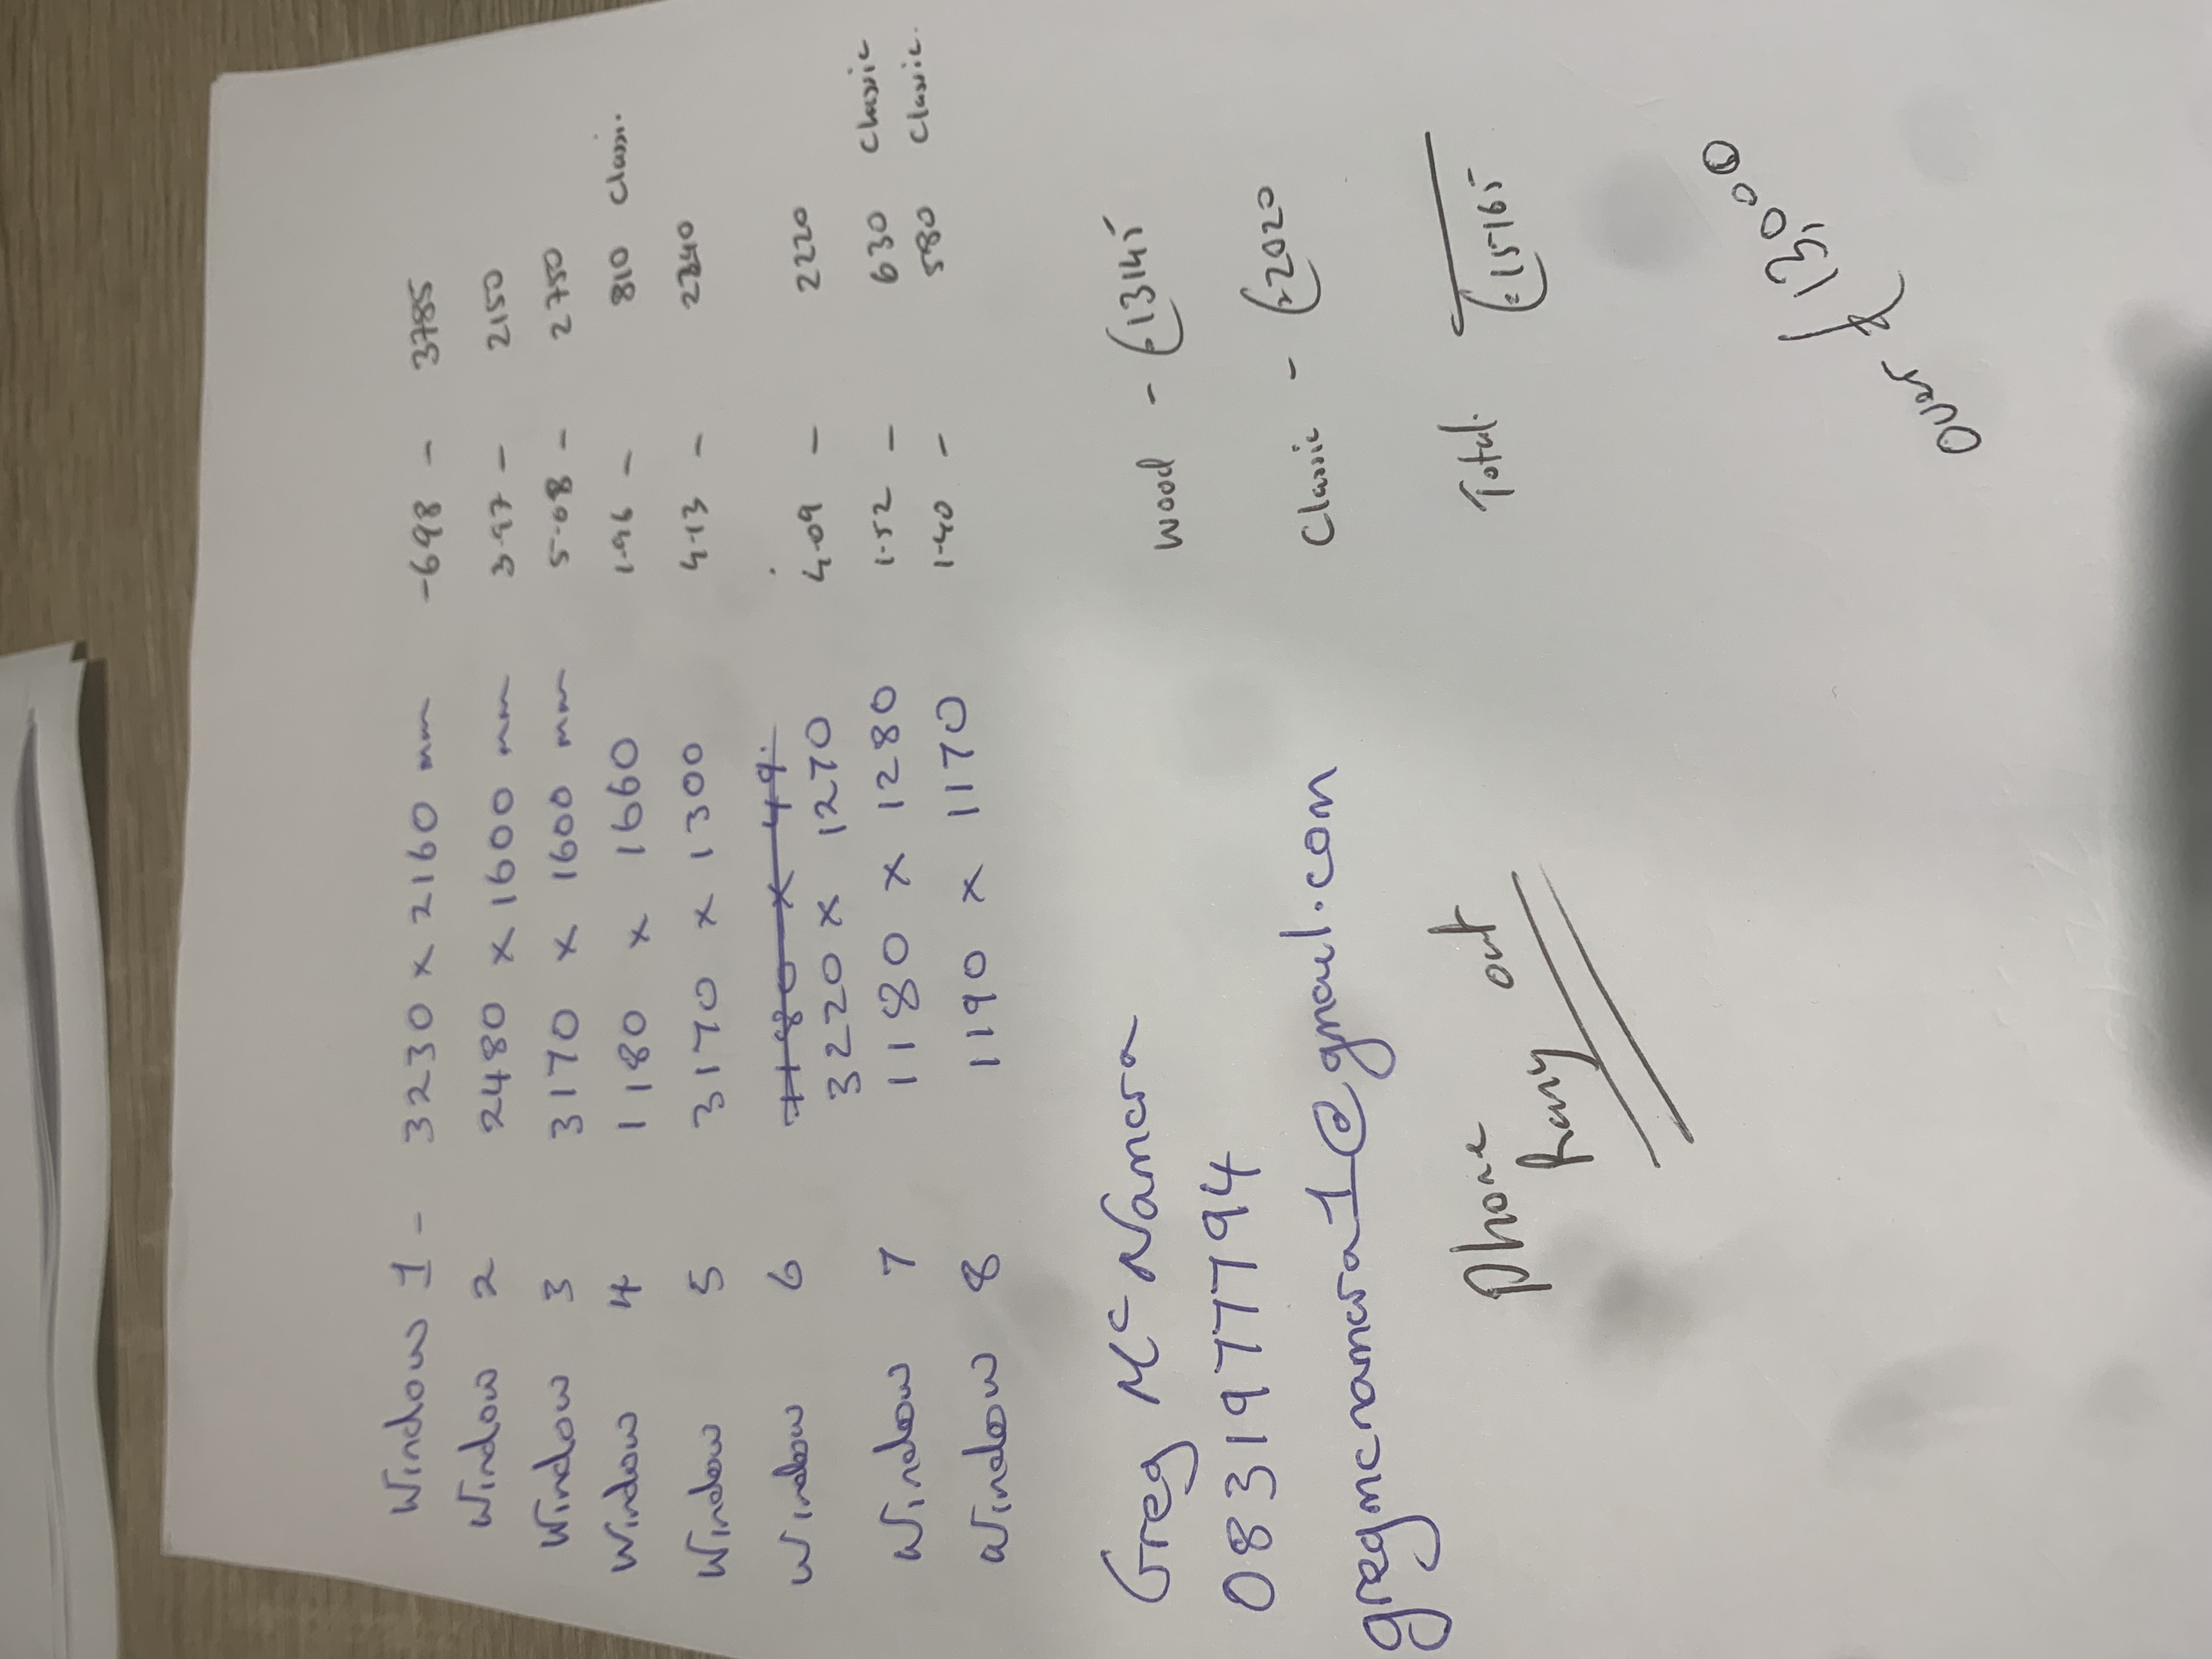 Window 1 - 3230 x 2160 mm - 6.98 - 3785
Window 2 2480 x 1600 mm 3.97 - 2150
Window 3 3170 x 1600 mm 5.08 - 2750
Window 4 1180 x 1660 1.96 - 810 Classic
Window 5 3170 x 1300 4.13 - 2240
Window 6 3220 x 1270 4.09 - 2220
Window 7 1180 x 1280 1.52 - 630 Classic
Window 8 1190 x 1170 1.40 - 580 Classic.
Greg McNamara
0831977794
gregmcnamara1@gmail.com
Phone
Rang out
Wood - €13145
Classic - €2020
Total. €15165
Over €13,000